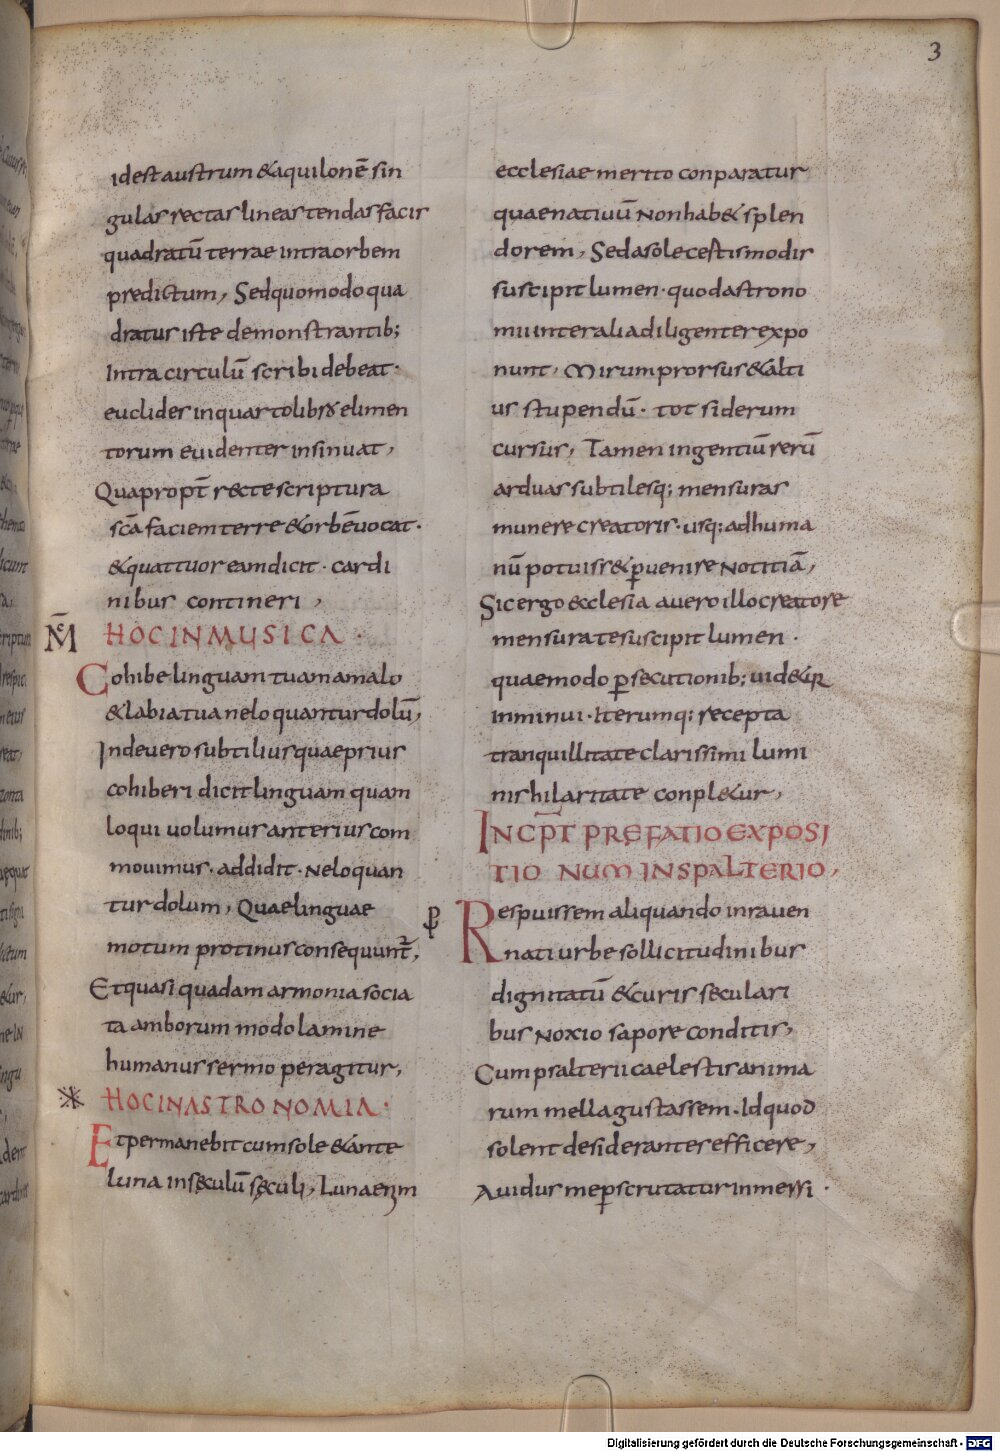 3
id est austrum & aquilonē sin
gulas rectas lineas tendas facis
quadratū terrae intra orbem
predictum, Sed quomodo qua
dratus iste demonstrantib;
Intra circulū scribi debeat·
euclides in quarto libro elimen
torum euidenter insinuat,
Quapropt̄ recte scriptura
scā faciem terre & orbē uocat·
& quattuor eam dicit · cardi
nibus contineri,
HOC IN MUSICA·
Cohibe linguam tuam a malo
& labia tua ne loquantur dolū,
Inde uero subtilius quae prius
cohiberi dicit linguam quam
loqui uolumus anterius com
mouimus· addidit· Ne loquan
tur dolum, Quae linguae
motum protinus consequunt̄,
Et quasi quadam armonia socia
ta amborum modolamine
humanus sermo peragitur,
HOC IN ASTRONOMIA·
Et permanebit cum sole & ante
luna in sęculū sęculi, Luna enim
ecclesiae merito conparatur
quae natiuū Non hab& splen
dorem, Sed a sole certis modis
suscipit lumen· quod astrono
mi inter alia diligenter expo
nunt, Mirum prorsus & alti
us stupendū· tot siderum
cursus, Tamen ingentiū rerū
arduas subtilesq; mensuras
munere creatoris· usq; ad huma
nū potuisse ꝑuenire Notitiā,
Sic ergo ecclesia a uero illo creatore
mensurate suscipit lumen·
quae modo ꝑsecutionib; uid&ur
inminui· Iterumq; recepta
tranquillitate clarissimi lumi
nis hilaritate conpl&ur,
INCP̄T PREFATIO EXPOSI
TIONUM IN SPALTERIO,
Respuissem aliquando in rauen
nati urbe sollicitudinibus
dignitatū & curis seculari
bus Noxio sapore conditis,
Cum psalterii caelestis anima
rum mella gustassem· Id quod
solent desiderantes efficere,
Auidus me ꝑscrutatur inmersi·
Digitalisierung gefördert durch die Deutsche Forschungsgemeinschaft - DFG